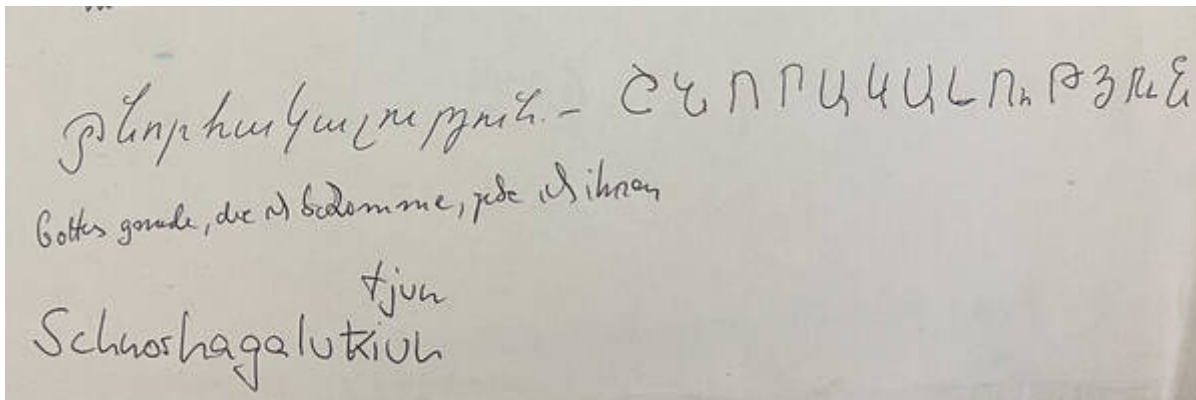 շնորհակալություն. – ՇՆՈՐԱԿԱԼՈւԹՅՈւՆ
Gottes gnade, die ich bekomme, gebe ich ihnen
tjun
Schnorhagalutiun